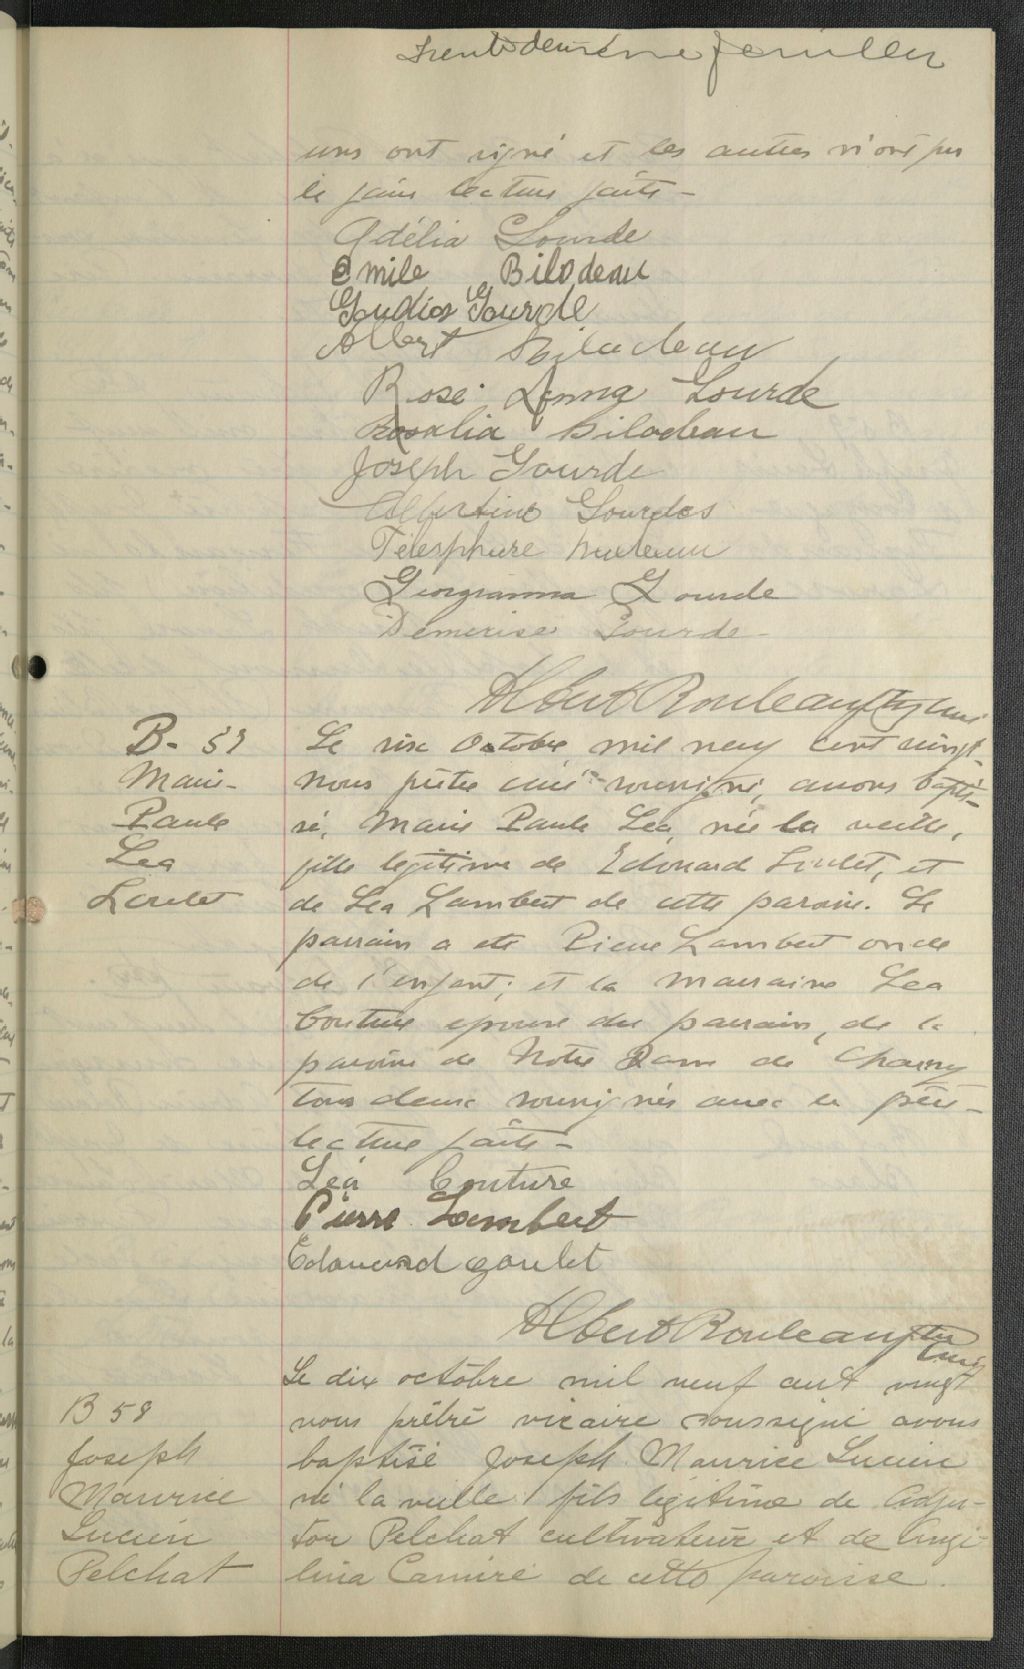 Trente deuxième feuillet
uns ont signé et les autres n'ont pu
le faire lecture faite -
Adélia Gourde
Emile Bilodeau
Gaudios Gourde
Albert Bilodeau
Rose Anna Gourde
Rosalia Bilodeau
Joseph Gourde
Albertine Gourdes
Télesphore
Georgianna Gourde
Demerise Gourde -
Albert Rouleau Ptre curé
B- 57
Marie-
Paule
Lea
Goulet
Le six Octobre mil neuf cent vingt
nous prêtre curé soussigné, avons bapti-
sé, Marie Paule Lea, née la veille,
fille legitime de Edouard Goulet, et
de Lea Lambert de cette paroisse. Le
parrain a été Pierre Lambert oncle
de l'enfant; et la marraine Lea
Couture epouse du parrain, de la
paroisse de Notre Dame de Charny
tous deux soussignés avec le père -
lecture faite -
Léa Couture
Pierre Lambert
Edouard goulet
Albert Rouleau ptre
curé
B 58
Joseph
Maurice
Lucien
Pelchat
Le dix octobre mil neuf cent vingt
nous prêtre vicaire soussigné avons
baptisé Joseph Maurice Lucien
né la veille fils légitime de Adju-
tor Pelchat cultivateur et de Angé-
lina Camiré de cette paroisse.